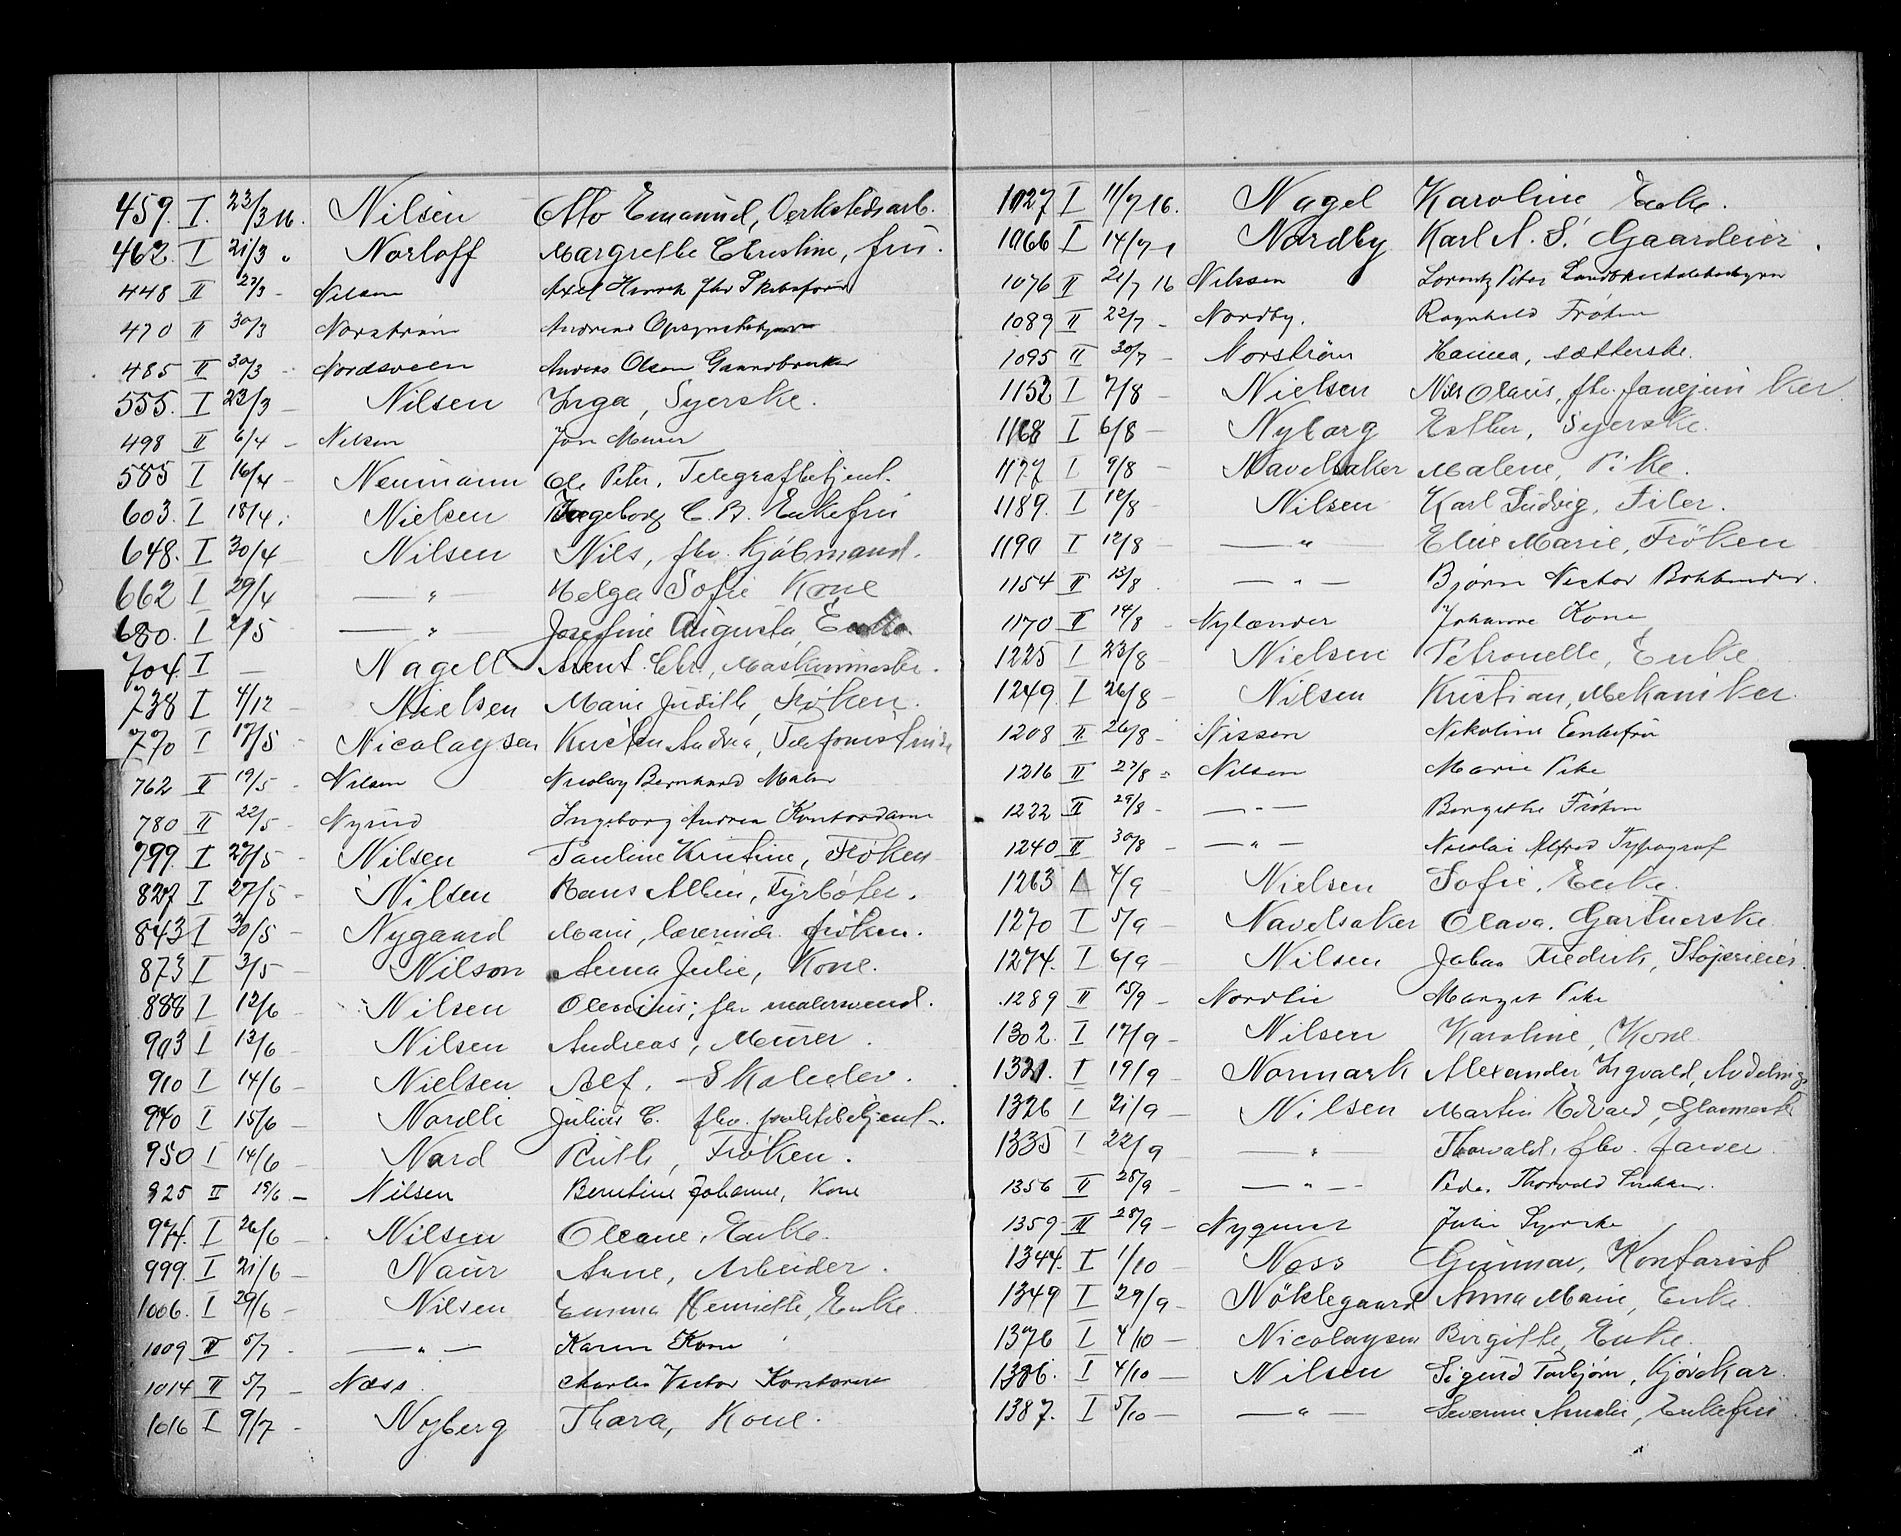 459. I. 23/3 16. Nilsen Otto Emanuel, Verkstedsarb.
462. I 21/3 " Norloff Margrethe Christine, fru.
448 II 23/3 - Nilsen Axel Henrik fhv Skibsfører
470 II 30/3 Norstrøm Andreas Opsynsbetjent
485 II 30/3 - Nordsveen Anders Olsen Gaardbruker
555. I 23/3 - Nilsen Inga, Syerske.
498 II 6/4 - Nilsen Jon Murer
585 I 16/4 - Neumann Ole Peter, Telegrafbetjent.
603. I 18/4. Nielsen Ingeborg C. B. Enkefru
648. I 30/4 - Nilsen Nils, fhv. Kjøbmand.
662 I 29/4 — " — Helga Sofie Kone
680. I 2/5 — " Josefine Augusta, Enke
704. I — Nagell Arent Chr., Maskinmester.
738 I 4/12 - Nielsen Marie Judith, Frøken.
770 I 17/5 - Nicolaysen Kirsten Andrea, Telefonistinde
762 II 19/5 - Nilsen Nicolay Bernhard Maler
780 II 22/5 - Nyrud Ingeborg Andrea Kontordame
799. I 27/5 - Nilsen Pauline Kristine, Frøken
827 I 27/5 - Nilsen Hans Albin, Fyrbøter.
843 I 30/5 - Nygaard Marie, lærerinde frøken.
873 I 3/5 - Nilson Anna Julie, Kone.
888 I 12/6 - Nilsen Olenius, fhv malersvend.
903 I 13/6 - Nilsen Andreas, Murer.
910 I 14/6 - Nielsen Alf, Skoleelev.
940 I 15/6 - Nordli Julius C. fhv. politibetjent.
950 I 14/6 - Nord Ruth, Frøken.
925 II 19/6 - Nilsen Berntine Johanne, Kone
974. I 26/6 - Nilsen Oleane, Enke.
999. I 21/6 - Naur Arne, Arbeider.
1006. I 29/6 - Nilsen Emma Henriette, Enke.
1009 II 5/7 - — " — Karen Kone
1014 II 5/7 - Næss Charles Victor Kontorist
1016 I 9/7 - Nyberg Thora, Kone.
1027 I 11/7 16. Nagel Karoline Enke.
1066 I 14/7 - Nordby Karl A. S. Gaardeier.
1076 II 21/7 16 Nilssen Lorentz Peter
1089 II 22/7 - Nordby. Ragnhild Frøken
1095 II 30/7 - Norstrøm Hanna, sætterske.
1152 I 7/8 - Nielsen Nils Olaus, fhv.
1168 I 6/8 - Nyborg Esther, Syerske.
1177 I 9/8 - Navelsaker Malene, Pike.
1189. I 12/8 Nilsen Karl Ludvig, Filer.
1190 I 12/8 — " — Elise Marie, Frøken
1154 II 13/8 — " — Bjørn Victor Bokbinder.
1170 II 14/8 - Nylænder Johanne Kone
1225 I 23/8 - Nielsen Petronelle, Enke
1249. I 26/8 - Nilsen Kristian, Mekaniker.
1208 II 26/8 - Nissen Nikoline Enkefru
1216 II 27/8 - Nilsen Marie Pike
1222 II 29/8 - — " — Bergithe Frøken
1240 II 30/8 - — " — Nicolai Alfred Typograf
1263 I 4/9 Nielsen Sofie, Enke.
1270 I 5/9 - Navelsaker Olava, Gartnerske
1274. I 6/9 - Nilsen Johan Fredrik, Sköierieier.
1289 II 15/9 - Nordlie Margit Pike
1302. I 17/9 - Nilsen Karoline, Kone
1321. I 19/9 - Normark Alexander Ingvald,
1326 I 21/9 - Nilsen Martin Edvard, Glasmester
1335 I 22/9 - — " — Thorvald, fhv. farver
1356 II 25/9 - — " — Peder Thorvald Snekker.
1359 II 28/9 - Nyquist Julie Syerske
1344. I 1/10 - Næss Gunnar, Kontorist
1349 I 29/9 - Nöklegaard Anna Marie, Enke.
1376 I 4/10 - Nicolaysen Birgitte, Enke.
1386. I 4/10 - Nilsen Sigurd Torbjørn, Kjørekar.
1387. I 5/10 - — " — Severine Amalie, Enkefru